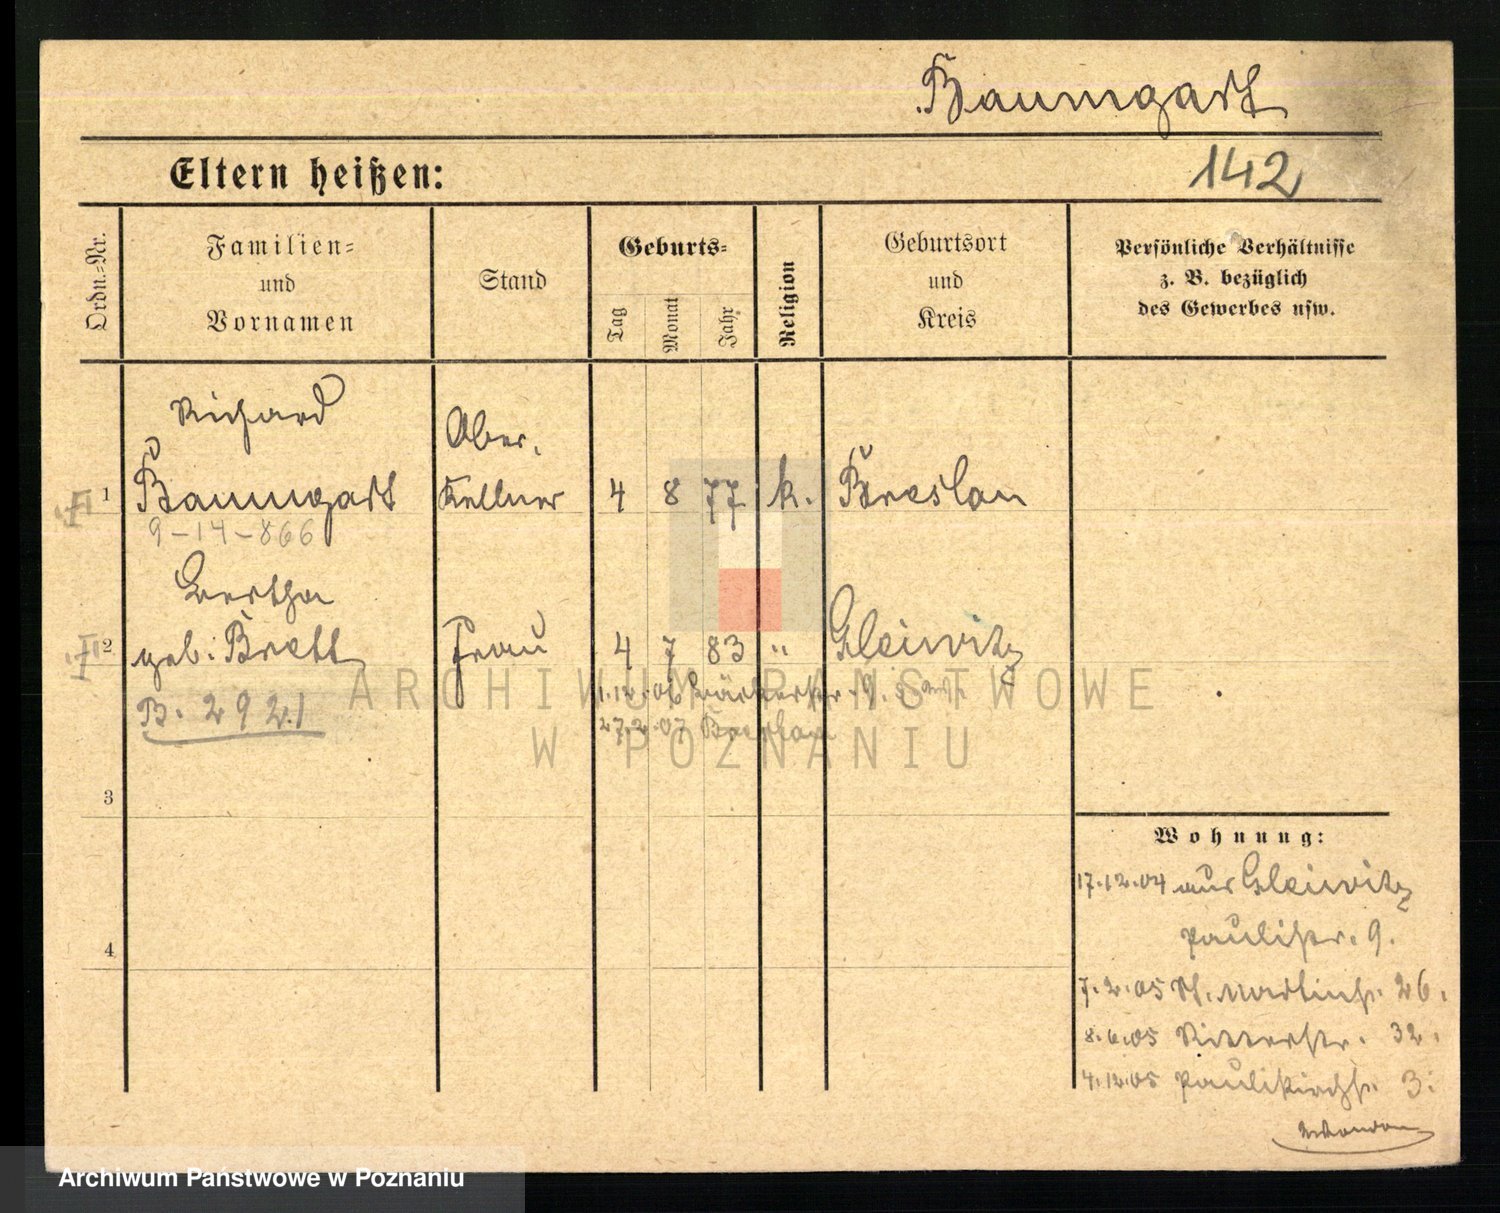 Baumgart
Eltern heißen:
142
Ordn.-Nr.
Familien-
und
Vornamen
Stand
Geburts-
Tag
Monat
Jahr
Religion
Geburtsort
und
Kreis
Persönliche Verhältnisse
z. B. bezüglich
des Gewerbes usw.
Richard
Ober.
1 Baumgart Kellner 4 8 77 k. Breslau
9-14-866
Bertha
2 geb. Brett Frau 4 7 83 " Gleiwitz
B. 2921
1.12.06
27.2.07 Breslau
ARCHIWUM PAŃSTWOWE
W POZNANIU
3
4
Wohnung:
17.12.04 aus Gleiwitz
Paulistr. 9.
7.2.05 St. Martinstr. 26.
8.6.05 Ritterstr. 32.
4.12.05 Paulikirchstr. 3.
Archiwum Państwowe w Poznaniu